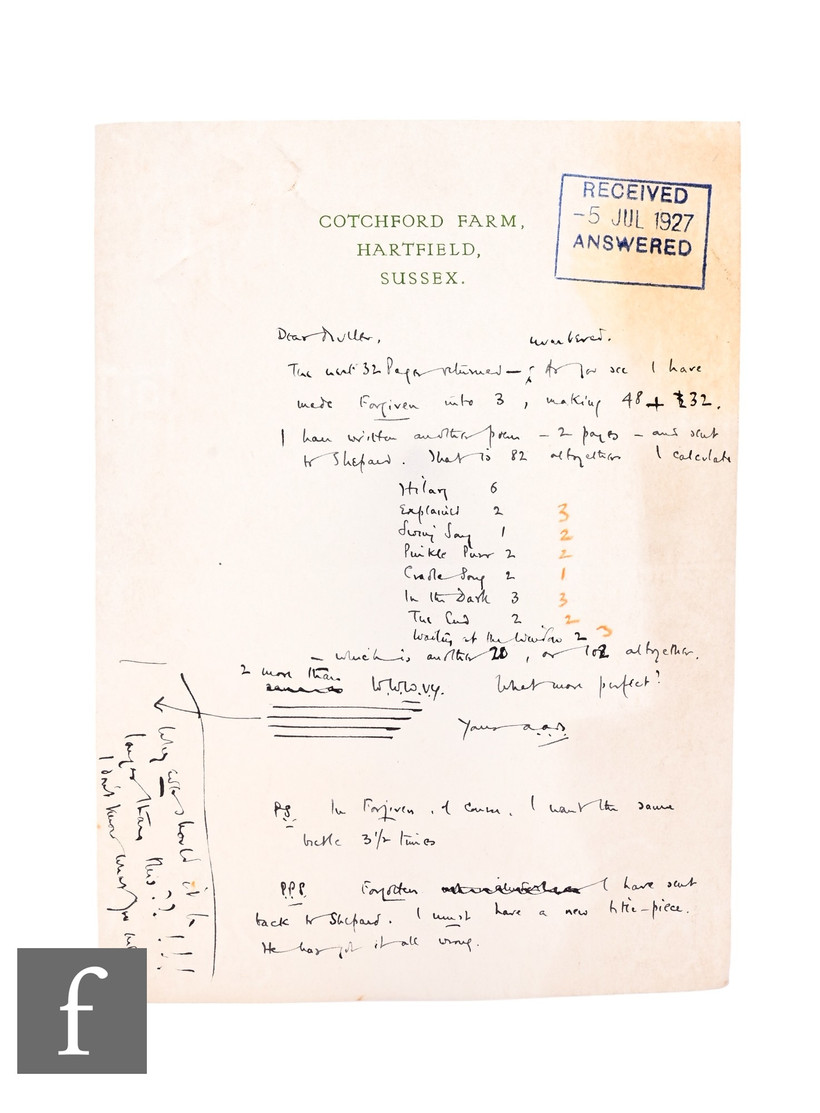 COTCHFORD FARM,
HARTFIELD,
SUSSEX.
RECEIVED
-5 JUL 1927
ANSWERED
Dear Muller,
numbered.
The next 32 Pages returned — As you see I have
made Forgiven into 3, making 48 + 32.
I have written another poem – 2 pages – and sent
to Shepard. That is 82 altogether I calculate
Hilary 6
Explained 2 3
Swing Song 1 2
Pinkle Purr 2 2
Cradle Song 2 1
In the Dark 3 3
The End 2 2
Waiting at the Window 2 3
– which is another 20, or 102 altogether.
2 more than
W.W.W.V.Y. What more perfect?
Yours a.a.m.
Why should it be
longer than this?? !!!
I don't know what you
PS. In Forgiven, of course, I want the same
beetle 3½ times
P.P.S. Forgotten I have sent
back to Shepard. I must have a new title-piece.
He has got it all wrong.
f